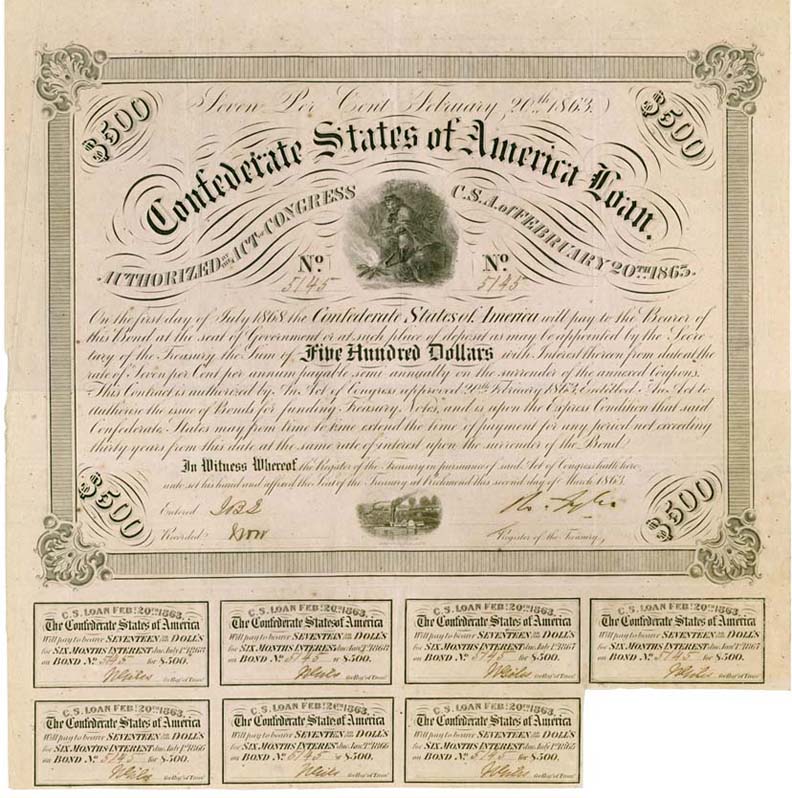 $500
Seven Per Cent February, 20th 1863.
$500
Confederate States of America Loan.
AUTHORIZED BY THE ACT OF CONGRESS C.S.A. of FEBRUARY 20TH 1863.
No. 5145 No. 5145
On the first day of July 1868 the Confederate States of America will pay to the Bearer of
this Bond at the seat of Government or at such place of deposit as may be appointed by the Secre-
tary of the Treasury the Sum of Five Hundred Dollars with Interest thereon from date at the
rate of Seven per Cent per annum payable semi annually on the surrender of the annexed Coupons.
This Contract is authorized by An Act of Congress approved 20th February 1863, Entitled An Act to
Authorise the issue of Bonds for funding Treasury Notes, and is upon the Express Condition that said
Confederate States may from time to time extend the time of payment for any period not exceeding
thirty years from this date at the same rate of interest upon the surrender of the Bond
In Witness Whereof the Register of the Treasury in pursuance of said Act of Congress hath here-
unto set his hand and affixed the Seal of the Treasury at Richmond this second day of March 1863.
$500
Entered
Recorded
Ro. Tyler
Register of the Treasury
$500
C.S. LOAN FEB: 20TH 1863.
The Confederate States of America
Will pay to bearer SEVENTEEN DOLL'S
for SIX MONTHS INTEREST due July 1st 1868
on BOND No. 5145 for $500.
for Reg'r of Treas'
C.S. LOAN FEB: 20TH 1863.
The Confederate States of America
Will pay to bearer SEVENTEEN DOLL'S
for SIX MONTHS INTEREST due Jan'y 1868
on BOND No. 5145 $500.
for Reg'r of Treas'
C.S. LOAN FEB: 20TH 1863.
The Confederate States of America
Will pay to bearer SEVENTEEN DOLL'S
for SIX MONTHS INTEREST due July 1st 1867
on BOND No. 5145 for $500.
for Reg'r of Treas'
C.S. LOAN FEB: 20TH 1863.
The Confederate States of America
Will pay to bearer SEVENTEEN DOLL'S
for SIX MONTHS INTEREST due Jan'y 1867
on BOND No. 5145 for $500.
for Reg'r of Treas'
C.S. LOAN FEB: 20TH 1863.
The Confederate States of America
Will pay to bearer SEVENTEEN DOLL'S
for SIX MONTHS INTEREST due July 1st 1866
on BOND No. 5145 for $500.
for Reg'r of Treas'
C.S. LOAN FEB: 20TH 1863.
The Confederate States of America
Will pay to bearer SEVENTEEN DOLL'S
for SIX MONTHS INTEREST due Jan'y 1866
on BOND No. 5145 $500.
for Reg'r of Treas'
C.S. LOAN FEB: 20TH 1863.
The Confederate States of America
Will pay to bearer SEVENTEEN DOLL'S
for SIX MONTHS INTEREST due July 1st 1865
on BOND No. 5145 for $500.
for Reg'r of Treas'